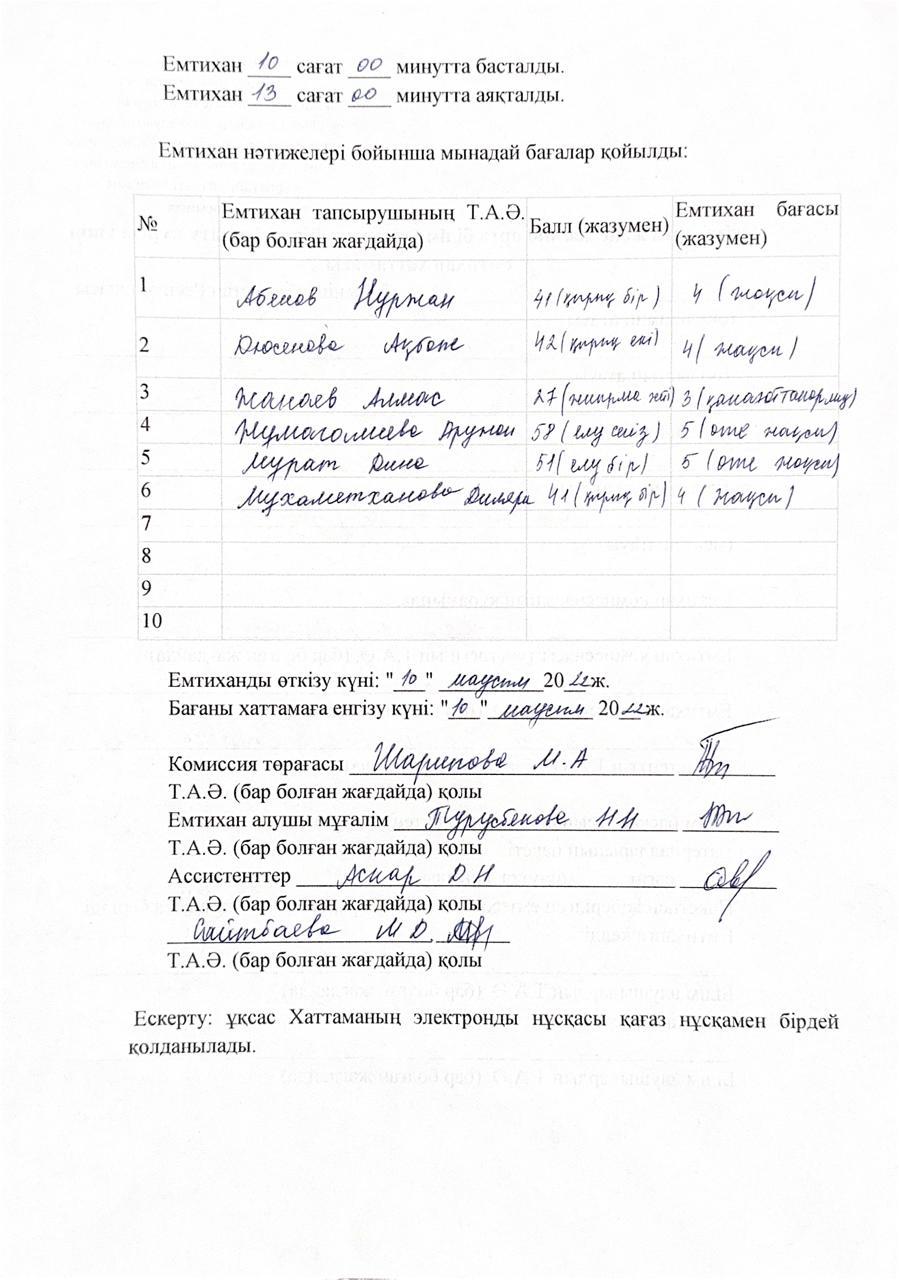 Емтихан 10 сағат 00 минутта басталды.
Емтихан 13 сағат 00 минутта аяқталды.
Емтихан нәтижелері бойынша мынадай бағалар қойылды:
№ Емтихан тапсырушының Т.А.Ә. (бар болған жағдайда) Балл (жазумен) Емтихан бағасы (жазумен)
1 Абенов Нұржан 41 (қырық бір) 4 (жақсы)
2 Дюсенова Ақботе 42 (қырық екі) 4 (жақсы)
3 Жанаев Алмас 27 (жиырма жті) 3 (қанағаттанарлық)
4 Жумагалиева Аружан 58 (елу сегіз) 5 (өте жақсы)
5 Мурат Дина 51 (елу бір) 5 (өте жақсы)
6 Мухаметханова Диляра 41 (қырық бір) 4 (жақсы)
7
8
9
10
Емтиханды өткізу күні: "10" маусым 2022ж.
Бағаны хаттамаға енгізу күні: "10" маусым 2022ж.
Комиссия төрағасы Шарипова М.А
Т.А.Ә. (бар болған жағдайда) қолы
Емтихан алушы мұғалім Турусбекова Н Н
Т.А.Ә. (бар болған жағдайда) қолы
Ассистенттер Аспар Д Н
Т.А.Ә. (бар болған жағдайда) қолы
Сайтбаева М Д.
Т.А.Ә. (бар болған жағдайда) қолы
Ескерту: ұқсас Хаттаманың электронды нұсқасы қағаз нұсқамен бірдей
қолданылады.